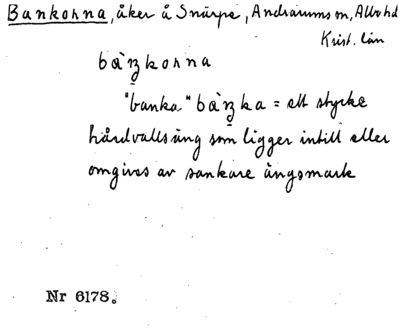 Bankorna, åker å Snärpe, Andrarums sn, Albo hd
Krist. län
bàŋkorna
"banka" bàŋka = ett stycke
hårdvallsäng som ligger intill eller
omgives av sankare ängsmark
Nr 6178.